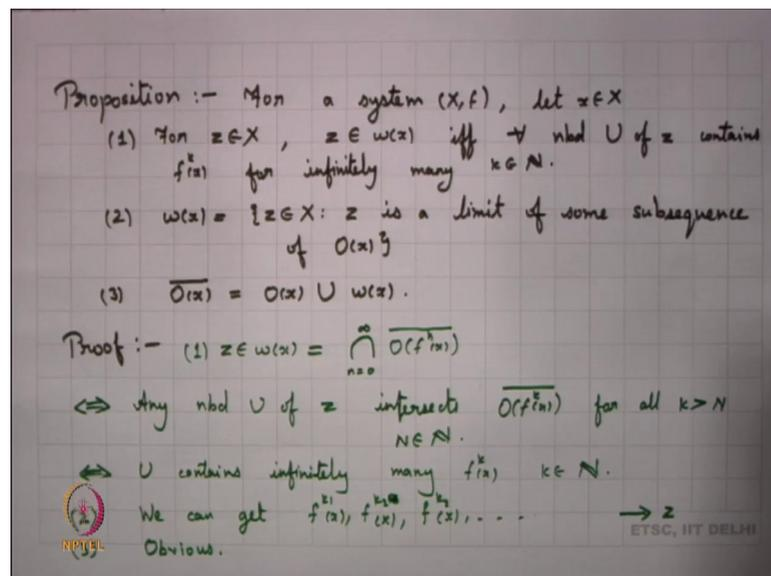 Proposition :- For a system (X, f), let x∈X
(1) For z∈X, z∈ω(x) iff ∀ nbd U of z contains
f^k(x) for infinitely many k∈ℕ.
(2) ω(x) = {z∈X: z is a limit of some subsequence
of O(x)}
(3) \overline{O(x)} = O(x) ∪ ω(x).
Proof :- (1) z∈ω(x) = ⋂_{n=0}^{∞} \overline{O(f^n(x))}
⟺ Any nbd U of z intersects \overline{O(f^k(x))} for all k > N
N∈ℕ.
⟺ U contains infinitely many f^k(x) k∈ℕ.
(2) We can get f^{k_1}(x), f^{k_2}(x), f^{k_3}(x), . . . → z
ETSC, IIT DELHI
NPTEL
(3) Obvious.